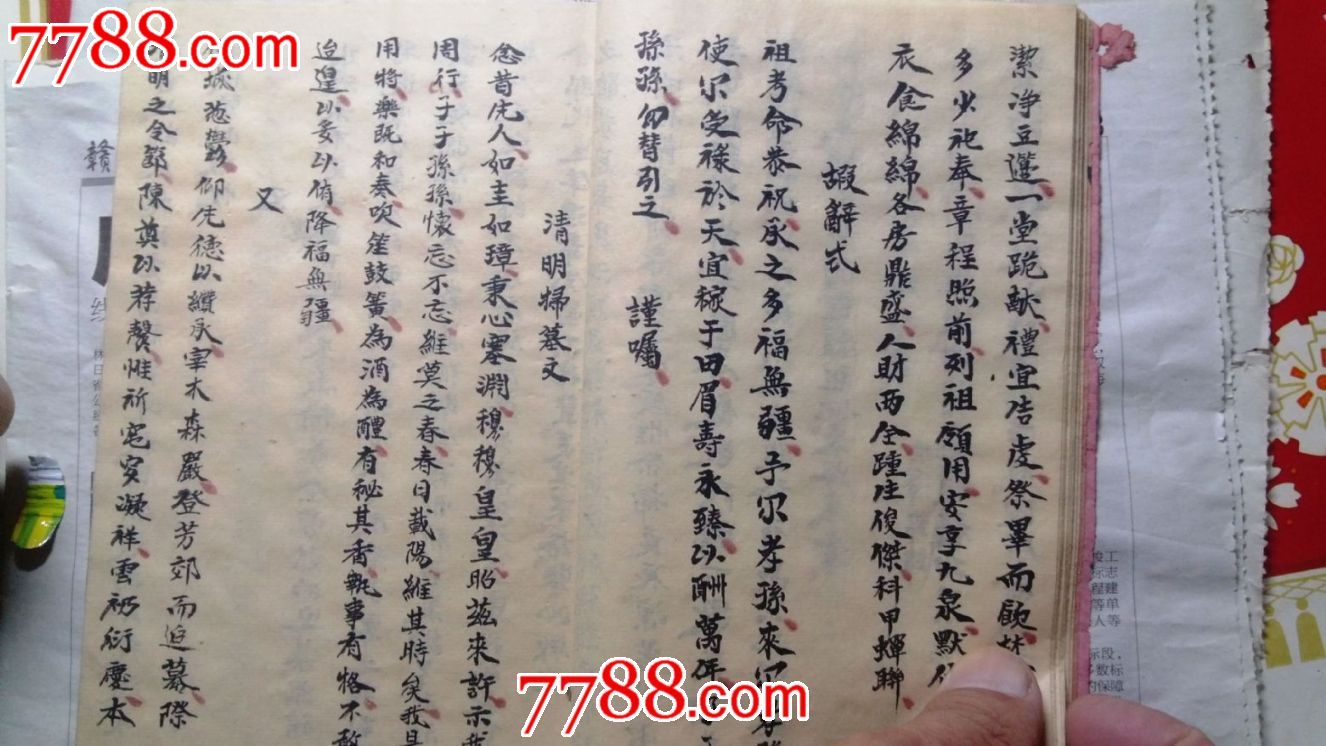 潔净立選一堂跪献禮宜告虔祭畢而飲
多少祀奉章程照前列祖願用安享九泉默
衣食綿綿各房鼎盛人財两全踵生俊傑科甲蟬聯
嘏辭式
祖考命恭祝承之多福無疆予尔孝孫來尔孝孫
使尔受祿於天宜稼于田眉壽永臻以酬萬年
孫孫勿替引之 謹囑
清明掃墓文
念昔先人如圭如璋秉心塞淵穆穆皇皇昭茲來許示我
周行子子孫孫懷忘不忘維莫之春春日載陽維其時矣我
用將樂既和奏吹笙鼓簧為酒為醴有秘其香執事有恪不敢
迨遑以妥以侑降福無疆
又
仰先德以纘承宰木森嚴登芳郊而追慕際
明之令節陳奠以荐馨惟祈窀安凝祥雲礽衍慶本
7788.com
7788.com
7788.com
贛